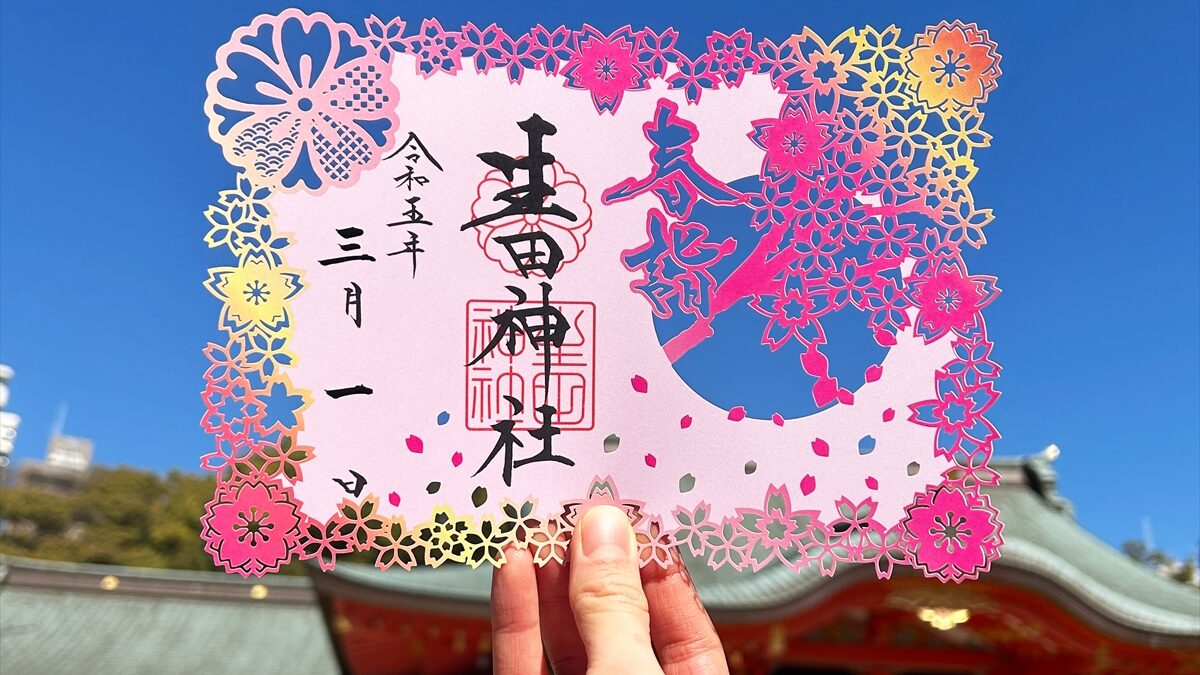 春詣
生田神社
生田
神社
令和五年
三月一日